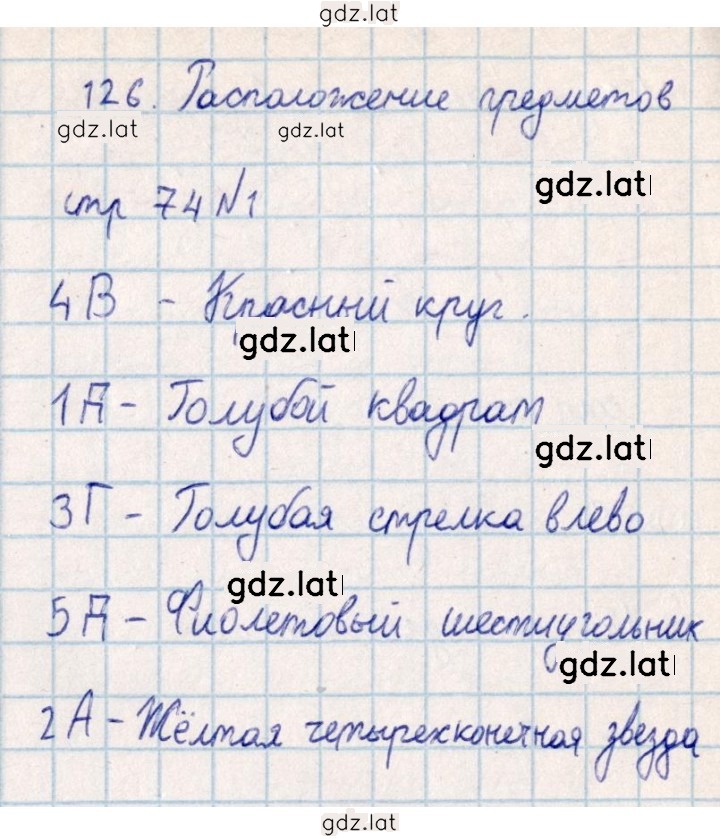 gdz.lat
126. Расположение предметов
gdz.lat gdz.lat
gdz.lat
стр 74 №1
4В - Красный круг.
gdz.lat
1Д - Голубой квадрат
gdz.lat
3Г - Голубая стрелка влево
gdz.lat
5Д - Фиолетовый шестиугольник
gdz.lat
2А - Жёлтая четырехконечная звезда
gdz.lat